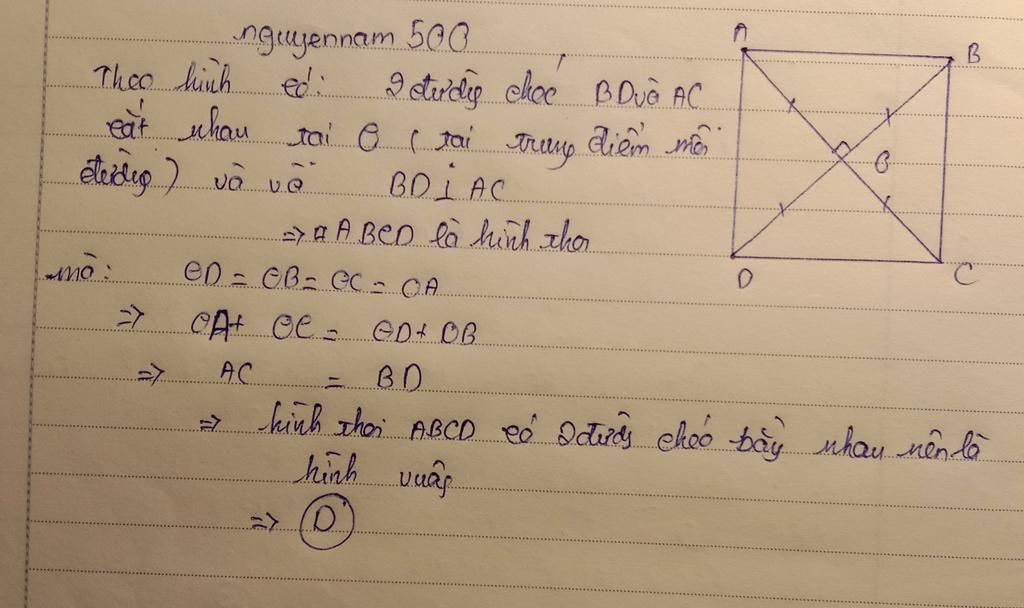 nguyennam 500
Theo hình có: 2 đường chéo BD và AC
cắt nhau tại O (tại trung điểm mỗi
đường) và BD ⊥ AC
=> ▱ ABCD là hình thoi
mà: OD = OB = OC = OA
=> OA + OC = OD + OB
=> AC = BD
=> hình thoi ABCD có 2 đường chéo bằng nhau nên là
hình vuông
=> D
A
B
O
D
C